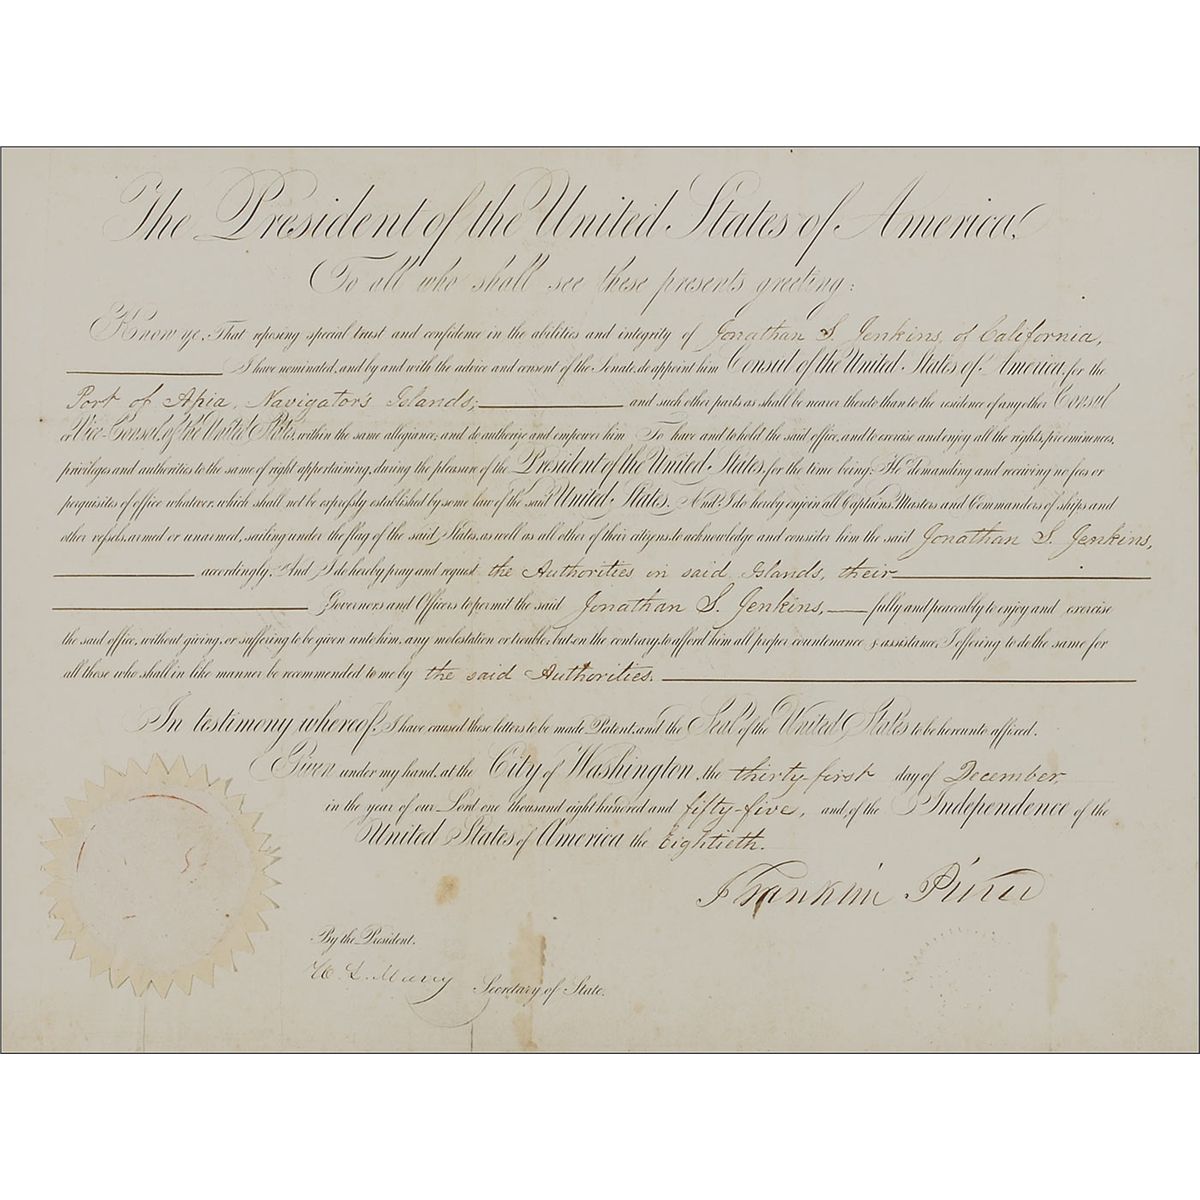 The President of the United States of America,
To all who shall see these presents greeting:
Know ye: That reposing special trust and confidence in the abilities and integrity of Jonathan S. Jenkins, of California,
I have nominated, and by and with the advice and consent of the Senate, do appoint him Consul of the United States of America, for the
Port of Apia, Navigator's Islands; and such other parts as shall be nearer thereto than to the residence of any other Consul
or Vice-Consul of the United States, within the same allegiance; and do authorize and empower him To have and to hold the said office, and to exercise and enjoy all the rights, preeminences,
privileges and authorities to the same of right appertaining, during the pleasure of the President of the United States, for the time being: He demanding and receiving no fees or
perquisites of office whatever, which shall not be expressly established by some law of the said United States. And I do hereby enjoin all Captains, Masters and Commanders of ships and
other vessels, armed or unarmed, sailing under the flag of the said States, as well as all other of their citizens, to acknowledge and consider him the said Jonathan S. Jenkins,
accordingly. And I do hereby pray and request the Authorities in said Islands, their
Governors and Officers to permit the said Jonathan S. Jenkins, fully and peaceably to enjoy and exercise
the said office, without giving, or suffering to be given unto him, any molestation or trouble, but on the contrary, to afford him all proper countenance & assistance, I offering to do the same for
all those who shall in like manner be recommended to me by the said Authorities.
In testimony whereof, I have caused these letters to be made Patent, and the Seal of the United States to be hereunto affixed.
Given under my hand, at the City of Washington, the thirty-first day of December,
in the year of our Lord one thousand eight hundred and fifty-five, and, of the Independence of the
United States of America the Eightieth.
Franklin Pierce
By the President.
W. L. Marcy Secretary of State.